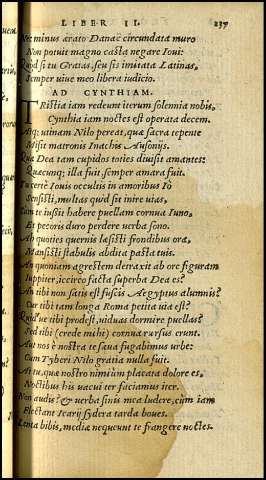 LIBER II. 237
Nec minus ærato Danaë circundata muro
Non potuit magno casta negare Ioui:
Quòd si tu Graias, seu sis imitata Latinas,
Semper uiue meo libera iudicio.
AD CYNTHIAM.
TRistia iam redeunt iterum solennia nobis,
Cynthia iam noctes est operata decem.
Atq; utinam Nilo pereat, quæ sacra tepente
Misit matronis Inachis Ausonijs.
Quæ Dea tam cupidos toties diuisit amantes:
Quæcunq; illa fuit, semper amara fuit.
Tu certè Iouis occultis in amoribus Iò
Sensisti, multas quid sit inire uias,
Cum te iussit habere puellam cornua Iuno,
Et pecoris duro perdere uerba sono.
Ah quoties quernis læsisti frondibus ora,
Mansisti stabulis abdita pasta tuis.
An quoniam agrestem detraxit ab ore figuram
Iuppiter, iccirco facta superba Dea es?
An tibi non satis est fuscis Aegyptus alumnis?
Cur tibi tam longa Roma petita uia est?
Quid'ue tibi prodest, uiduas dormire puellas?
Sed tibi (crede mihi) cornua rursus erunt.
Aut nos è nostra te sæua fugabimus urbe:
Cum Tyberi Nilo gratia nulla fuit.
At tu, quæ nostro nimiùm placata dolore es,
Noctibus his uacui ter faciamus iter.
Non audis? & uerba sinis mea ludere, cùm iam
Flectant Icarij sydera tarda boues.
Lenta bibis, mediæ nequeunt te frangere noctes.